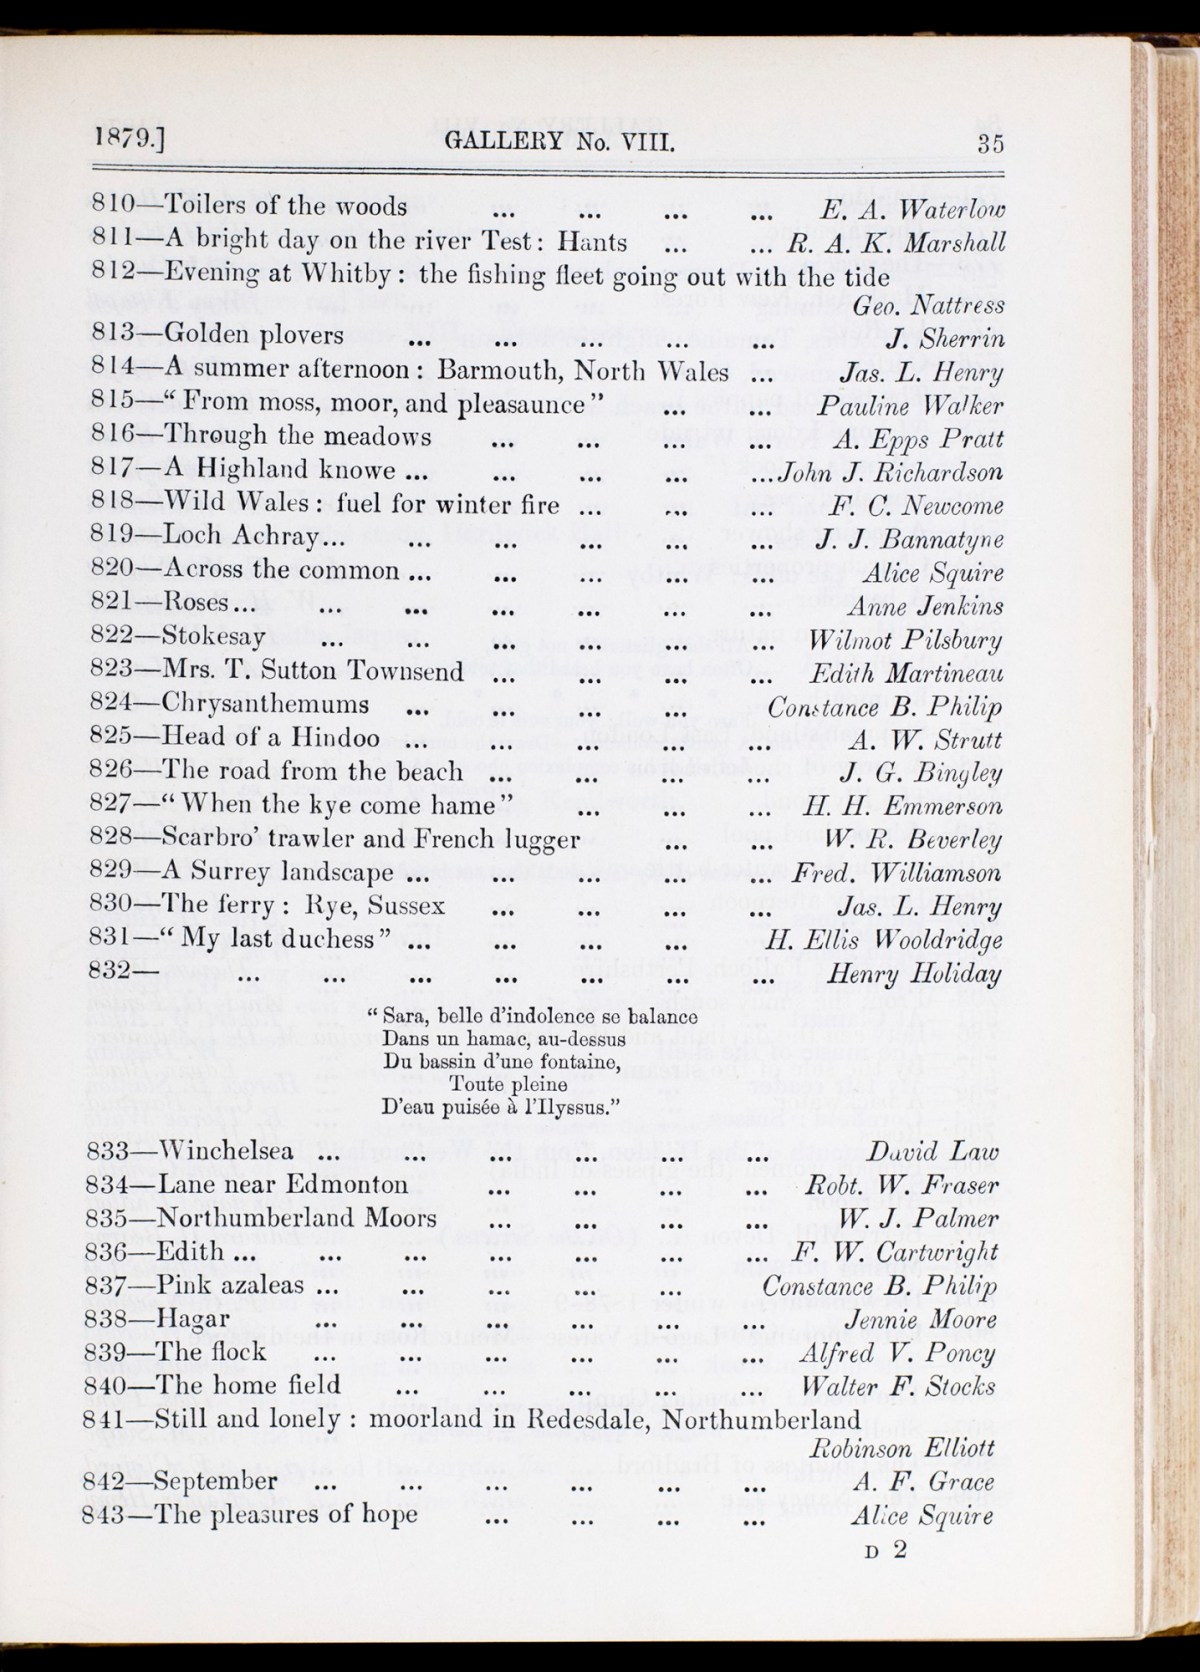 1879.] GALLERY No. VIII. 35
810—Toilers of the woods ... ... ... ... E. A. Waterlow
811—A bright day on the river Test: Hants ... ... R. A. K. Marshall
812—Evening at Whitby: the fishing fleet going out with the tide
Geo. Nattress
813—Golden plovers ... ... ... ... ... J. Sherrin
814—A summer afternoon: Barmouth, North Wales ... Jas. L. Henry
815—“From moss, moor, and pleasaunce” ... ... Pauline Walker
816—Through the meadows ... ... ... ... A. Epps Pratt
817—A Highland knowe ... ... ... ... ... John J. Richardson
818—Wild Wales: fuel for winter fire ... ... ... F. C. Newcome
819—Loch Achray... ... ... ... ... ... J. J. Bannatyne
820—Across the common ... ... ... ... ... Alice Squire
821—Roses... ... ... ... ... ... ... Anne Jenkins
822—Stokesay ... ... ... ... ... ... Wilmot Pilsbury
823—Mrs. T. Sutton Townsend ... ... ... ... Edith Martineau
824—Chrysanthemums ... ... ... ... Constance B. Philip
825—Head of a Hindoo ... ... ... ... ... A. W. Strutt
826—The road from the beach ... ... ... ... J. G. Bingley
827—“When the kye come hame” ... ... ... H. H. Emmerson
828—Scarbro’ trawler and French lugger ... ... W. R. Beverley
829—A Surrey landscape ... ... ... ... ... Fred. Williamson
830—The ferry: Rye, Sussex ... ... ... ... Jas. L. Henry
831—“My last duchess” ... ... ... ... H. Ellis Wooldridge
832— ... ... ... ... ... ... ... Henry Holiday
“Sara, belle d’indolence se balance
Dans un hamac, au-dessus
Du bassin d’une fontaine,
Toute pleine
D’eau puisée à l’Ilyssus.”
833—Winchelsea ... ... ... ... ... ... David Law
834—Lane near Edmonton ... ... ... ... Robt. W. Fraser
835—Northumberland Moors ... ... ... ... W. J. Palmer
836—Edith ... ... ... ... ... ... ... F. W. Cartwright
837—Pink azaleas ... ... ... ... ... Constance B. Philip
838—Hagar ... ... ... ... ... ... Jennie Moore
839—The flock ... ... ... ... ... ... Alfred V. Poncy
840—The home field ... ... ... ... ... Walter F. Stocks
841—Still and lonely: moorland in Redesdale, Northumberland
Robinson Elliott
842—September ... ... ... ... ... ... A. F. Grace
843—The pleasures of hope ... ... ... ... Alice Squire
D 2